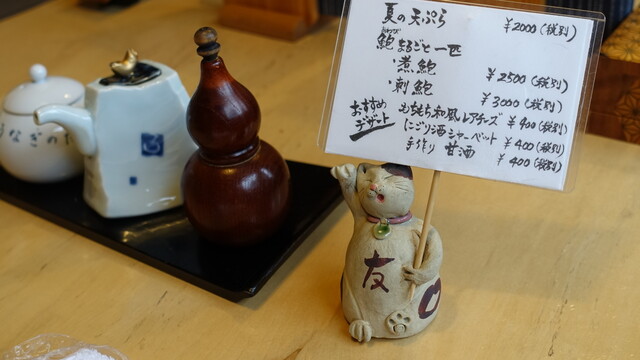 夏の天ぷら ¥2000(税別)
鮑まるごと一匹
・煮鮑 ¥2500(税別)
・刺鮑 ¥3000(税別)
おすすめデザート
もちもち和風レアチーズ ¥400(税別)
にごり酒シャーベット ¥400(税別)
手作り 甘酒 ¥400(税別)
友
うなぎの